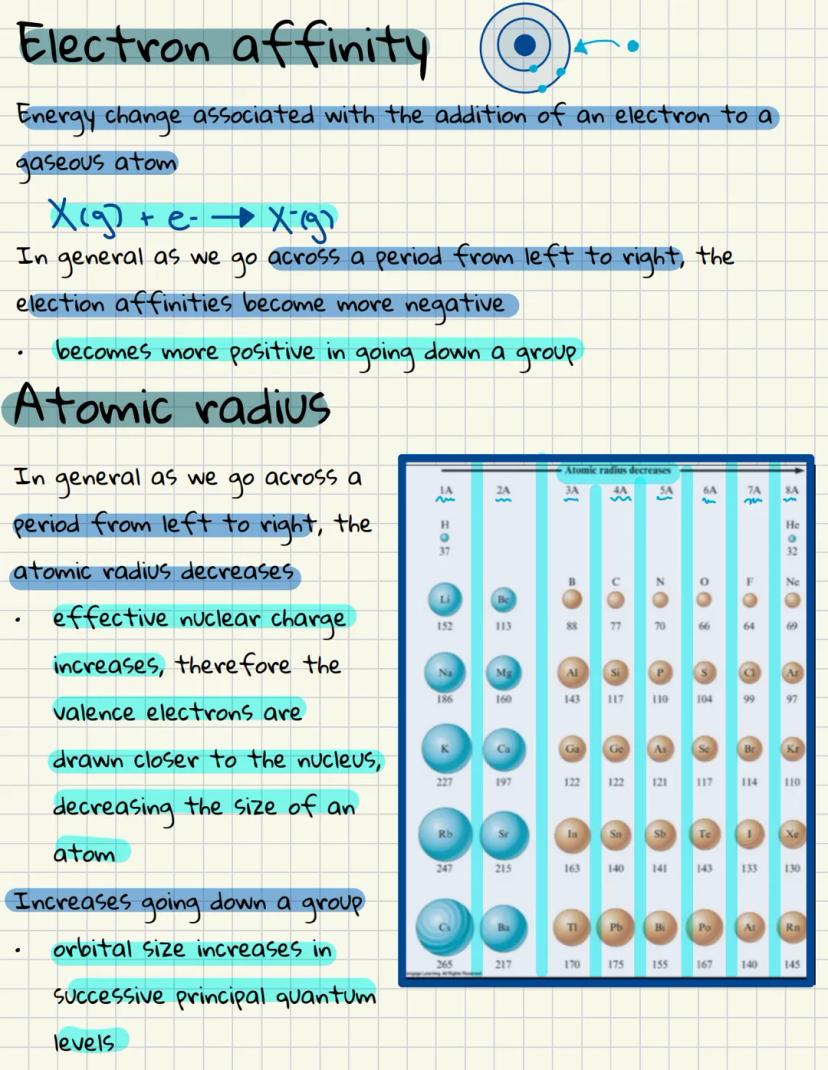 Electron affinity
Energy change associated with the addition of an electron to a
gaseous atom
X(g) + e- → X-(g)
In general as we go across a period from left to right, the
election affinities become more negative
· becomes more positive in going down a group
Atomic radius
In general as we go across a
period from left to right, the
atomic radius decreases
· effective nuclear charge
increases, therefore the
valence electrons are
drawn closer to the nucleus,
decreasing the size of an
atom
Increases going down a group
· orbital size increases in
successive principal quantum
levels
Atomic radius decreases
1A 2A 3A 4A 5A 6A 7A 8A
H He
37 32
B C N O F Ne
Li Be
152 113 88 77 70 66 64 69
Na Mg Al Si P S Cl Ar
186 160 143 117 110 104 99 97
K Ca Ga Ge As Se Br Kr
227 197 122 122 121 117 114 110
Rb Sr In Sn Sb Te I Xe
247 215 163 140 141 143 133 130
Cs Ba Tl Pb Bi Po At Rn
265 217 170 175 155 167 140 145
Learning. All Rights Reserved.